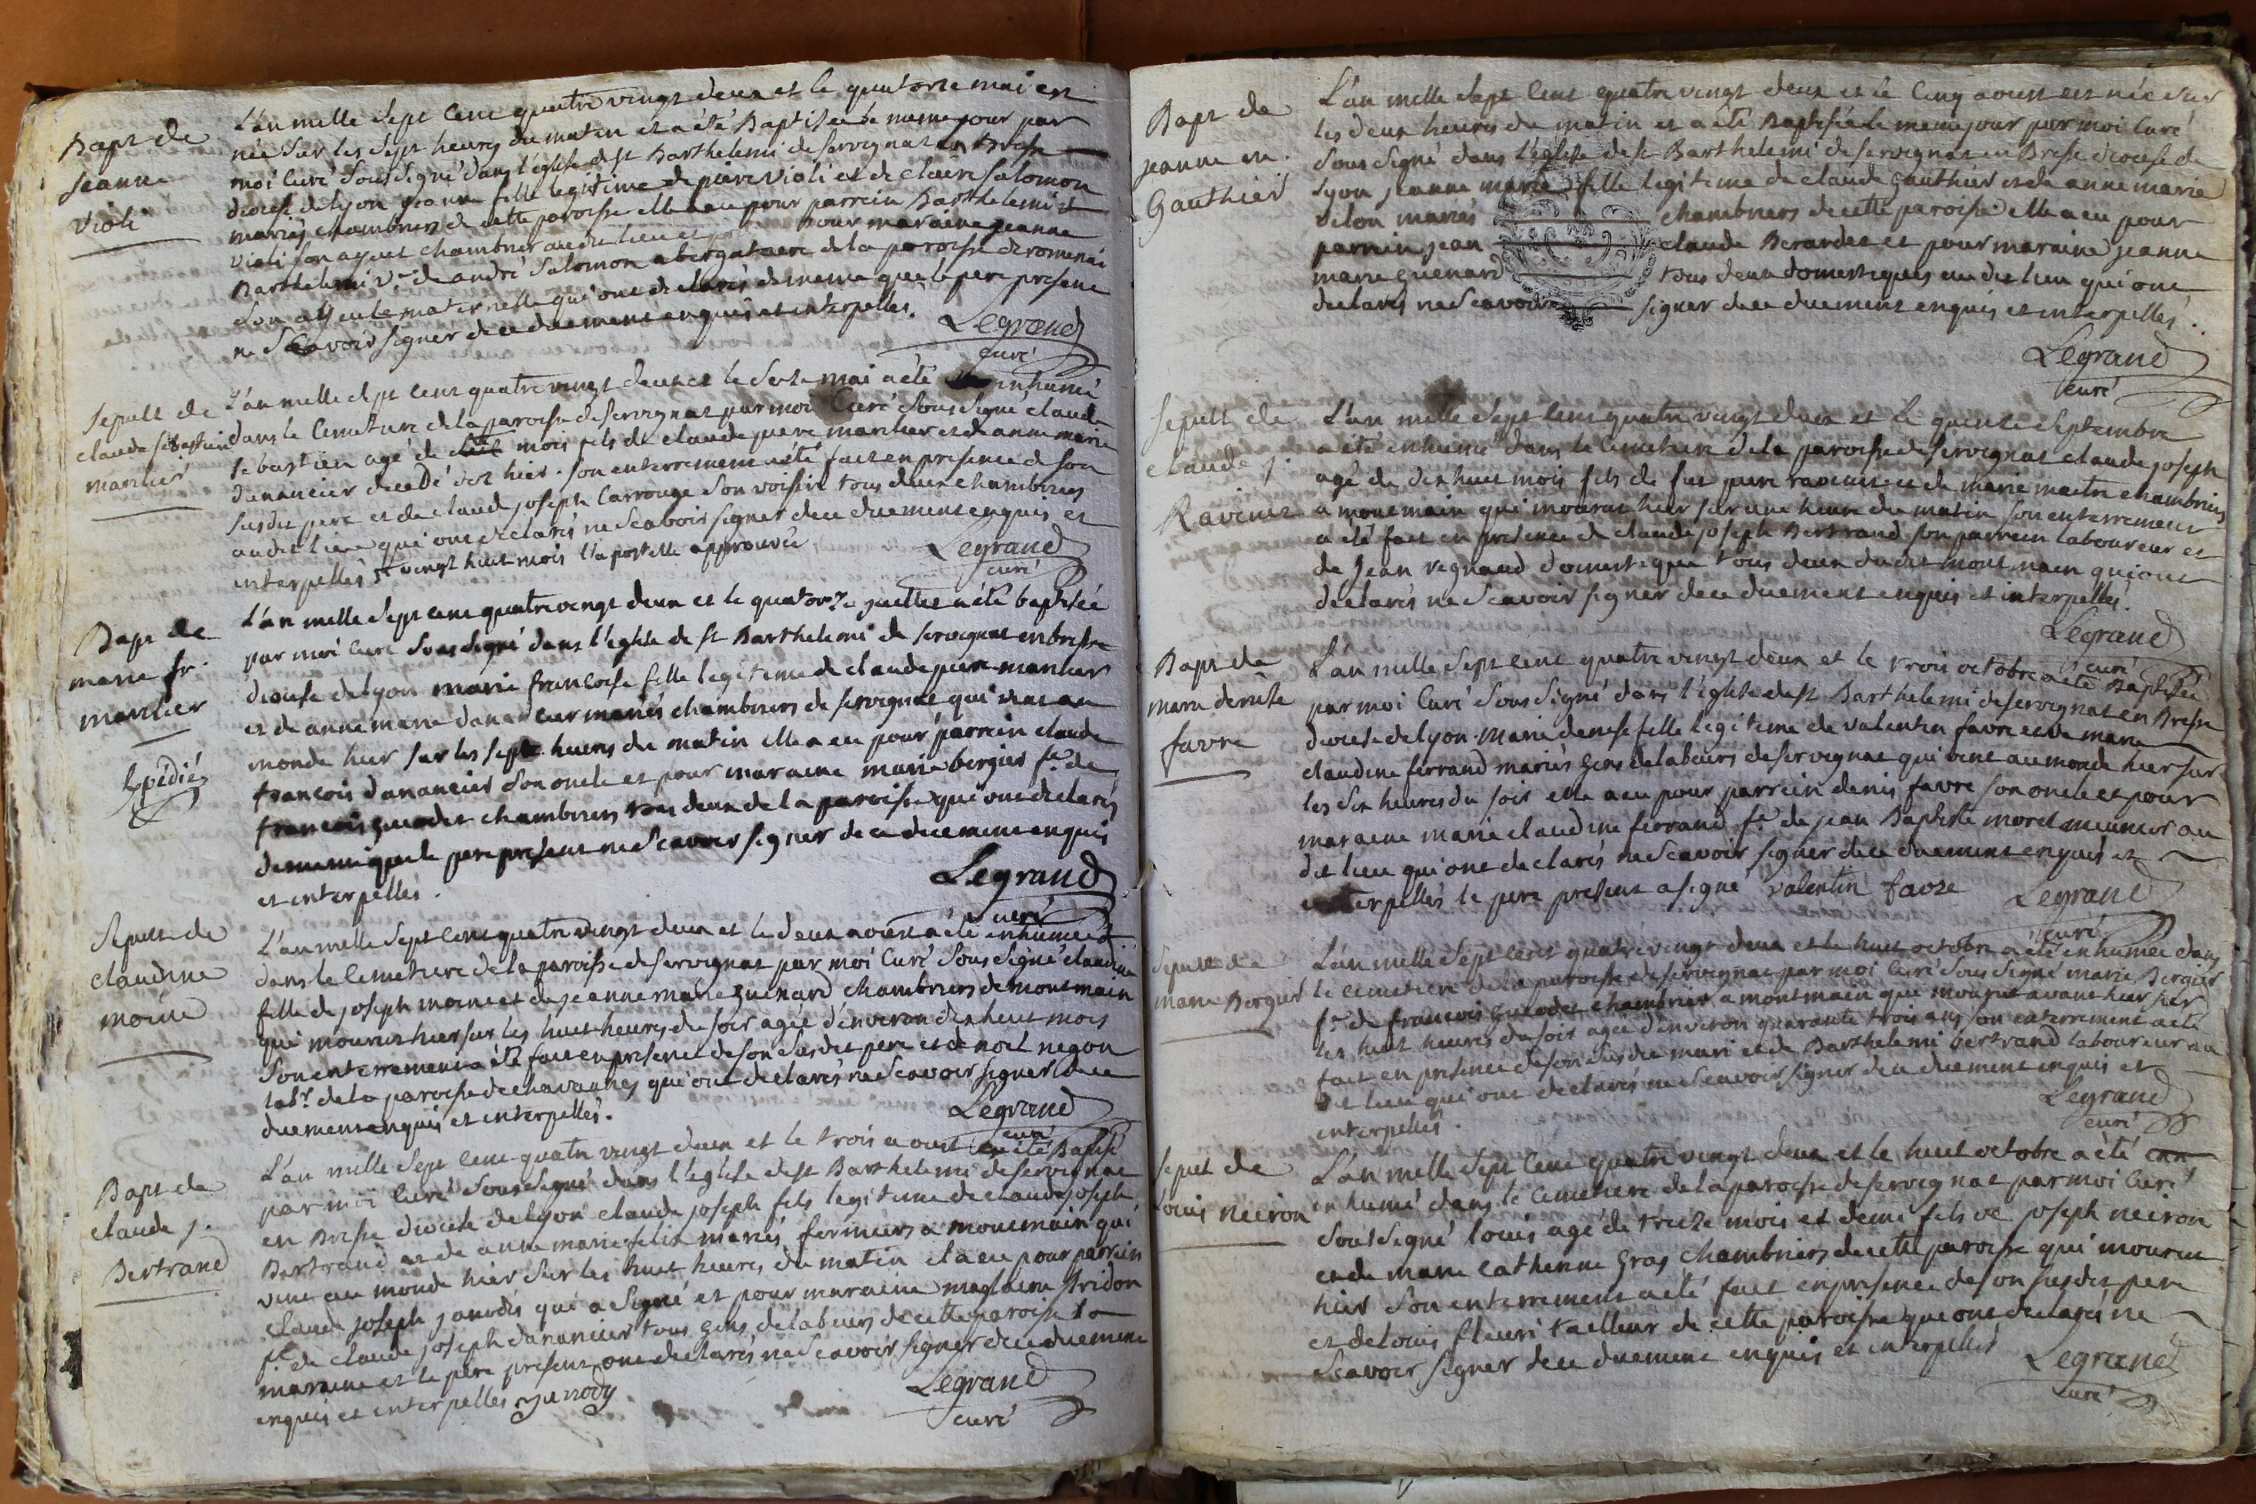 Bapt de
jeanne
violi
L'an mille sept cent quatre vingt deux et le quatorze mai est
née sur les sept heures du matin et a été Baptisée le meme jour par
moi Curé sous signé dans l'eglise de st Barthelemi de servignat en Bresse
diocese de lyon jeanne fille legitime de piere violi et de claire salomon
mariés chambriers de cette paroisse elle a eu pour parrein Barthelemi
violi son ayeul chambrier au dit lieu et pour maraine jeanne
Barthelemi ve de andré salomon abergataire de la paroisse de romenai
son ayeule maternelle qui ont declarés de meme que le pere present
ne scavoir signer de ce duement enquis et interpellés.
Legrand
curé
Sepult de
claude sebastien
marilier
L'an mille sept cent quatre vingt deux et le seize mai a été inhumé
dans le Cimetiere de la paroisse de servignat par moi Curé sous signé claude
sebastien agé de huit mois fils de claude piere marilier et de anne marie
danancier decedé d'hier. son enterrement a été fait en presence de son
susdit pere et de claude joseph Carrouge son voisin tous deux chambriers
au dit lieu qui ont declarés ne scavoir signer de ce duement enquis et
interpellés vingt huit mois l'apostille approuvée
Legrand
curé
Bapt de
marie fr.
marilier
Expédié
L'an mille sept cent quatre vingt deux et le quatorze juillet a été baptisée
par moi Curé sous signé dans l'eglise de st Barthelemi de servignat en bresse
diocese de lyon marie francoise fille legitime de claude piere marilier
et de anne marie danancier mariés chambriers de servignat qui vint au
monde hier sur les sept heures du matin elle a eu pour parrein claude
francois dananciers son oncle et pour maraine marie bergier fe de
francois guerdet chambriers tous deux de la paroisse qui ont declarés
de meme que le pere present ne scavoir signer de ce duement enquis
et interpellés.
Legrand
curé
Sepult de
claudine
moine
L'an mille sept cent quatre vingt deux et le deux aoust a été inhumée
dans le Cimetiere de la paroisse de servignat par moi Curé sous signé claudine
fille de joseph moine et de jeanne marie guenard chambriers de montmain
qui mourut hier sur les huit heures du soir agée d'environ dix huit mois
son enterrement a été fait en presence de son susdit pere et de noël negon
labr. de la paroisse de chavannes qui ont declarés ne scavoir signer de ce
duement enquis et interpellés.
Legrand
curé
Bapt de
claude j.
Bertrand
L'an mille sept cent quatre vingt deux et le trois aoust a été Baptisé
par moi Curé sous signé dans l'eglise de st Barthelemi de servignat
en Bresse diocese de lyon claude joseph fils legitime de claude joseph
Bertrand et de anne marie felix mariés fermiers a montmain qui
vint au monde hier sur les huit heures du matin il a eu pour parrein
claude joseph janodis qui a signé et pour maraine maglaine Pridon
fe de claude joseph dananciers tous gens de labeurs de cette paroisse la
maraine et le pere present ont declarés ne scavoir signer de ce duement
enquis et interpellés janody
Legrand
curé
Bapt de
jeanne m.
Gauthier
L'an mille sept cent quatre vingt deux et le cinq aoust est née sur
les deux heures du matin et a été Baptisée le meme jour par moi Curé
sous signé dans l'eglise de st Barthelemi de servignat en Bresse diocese de
lyon jeanne marie fille legitime de claude gauthier et de anne marie
velon mariés chambriers de cette paroisse elle a eu pour
parrein jean claude Berardet et pour maraine jeanne
marie guenard tous deux domestiques au dit lieu qui ont
declarés ne scavoir signer de ce duement enquis et interpellés.
Legrand
curé
Sepult de
claude j.
Ravinet
L'an mille sept cent quatre vingt deux et le quinze septembre
a été inhumé dans le Cimetiere de la paroisse de servignat claude joseph
agé de dix huit mois fils de feu piere ravinet et de marie maitre chambriers
a montmain qui mourut hier sur une heure du matin son enterrement
a été fait en presence de claude joseph Bertrand son parrein laboureur et
de jean regnaud domestique tous deux du dit montmain qui ont
declarés ne scavoir signer de ce duement enquis et interpellés.
Legrand
curé
Bapt de
marie denise
favre
L'an mille sept cent quatre vingt deux et le trois octobre a été Baptisée
par moi Curé sous signé dans l'eglise de st Barthelemi de servignat en Bresse
diocese de lyon marie denise fille legitime de valentin favre et de marie
claudine ferrand mariés gens de labeurs de servignat qui vint au monde hier sur
les six heures du soir elle a eu pour parrein denis favre son oncle et pour
maraine marie claudine ferrand fe de jean Baptiste moret meunier au
dit lieu qui ont declarés ne scavoir signer de ce duement enquis et
interpellés le pere present a signé valentin favre
Legrand
curé
Sepult de
marie Bergier
L'an mille sept cent quatre vingt deux et le huit octobre a été inhumée dans
le cimetiere de la paroisse de servignat par moi Curé sous signé marie Bergier
fe de francois guerdet chambrier a montmain qui mourut avant hier sur
les huit heures du soir agée d'environ quarante trois ans son enterrement a été
fait en presence de son susdit mari et de Barthelemi bertrand laboureur au
dit lieu qui ont declarés ne scavoir signer de ce duement enquis et
interpellés.
Legrand
curé
Sepult de
Louis neiron
L'an mille sept cent quatre vingt deux et le huit octobre a été
inhumé dans le cimetiere de la paroisse de servignat par moi Curé
sous signé louis agé de treize mois et demi fils de joseph neiron
et de marie catherine gras chambriers de cette paroisse qui mourut
hier son enterrement a été fait en presence de son susdit pere
et de louis fleuri tailleur de cette paroisse qui ont declarés ne
scavoir signer de ce duement enquis et interpellés
Legrand
curé